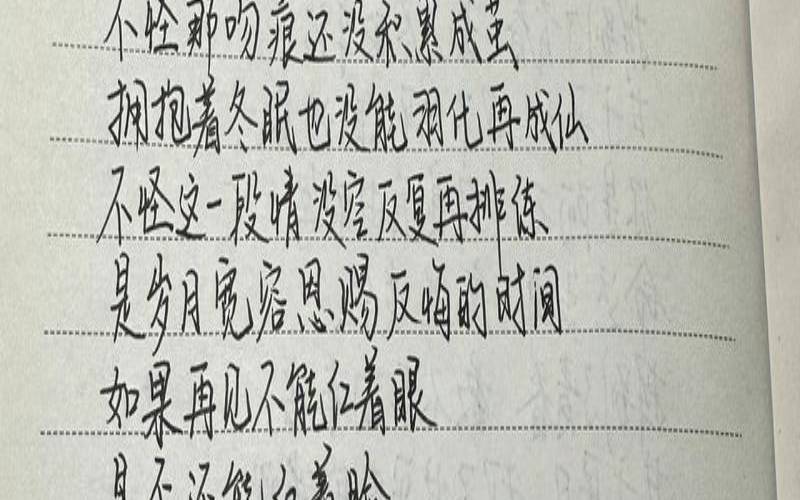 不怪那吻痕还没积累成茧
拥抱着冬眠也没能羽化再成仙
不怪这一段情没空反复再排练
是岁月宽容恩赐反悔的时间
如果再见不能红着眼
是否还能红着脸